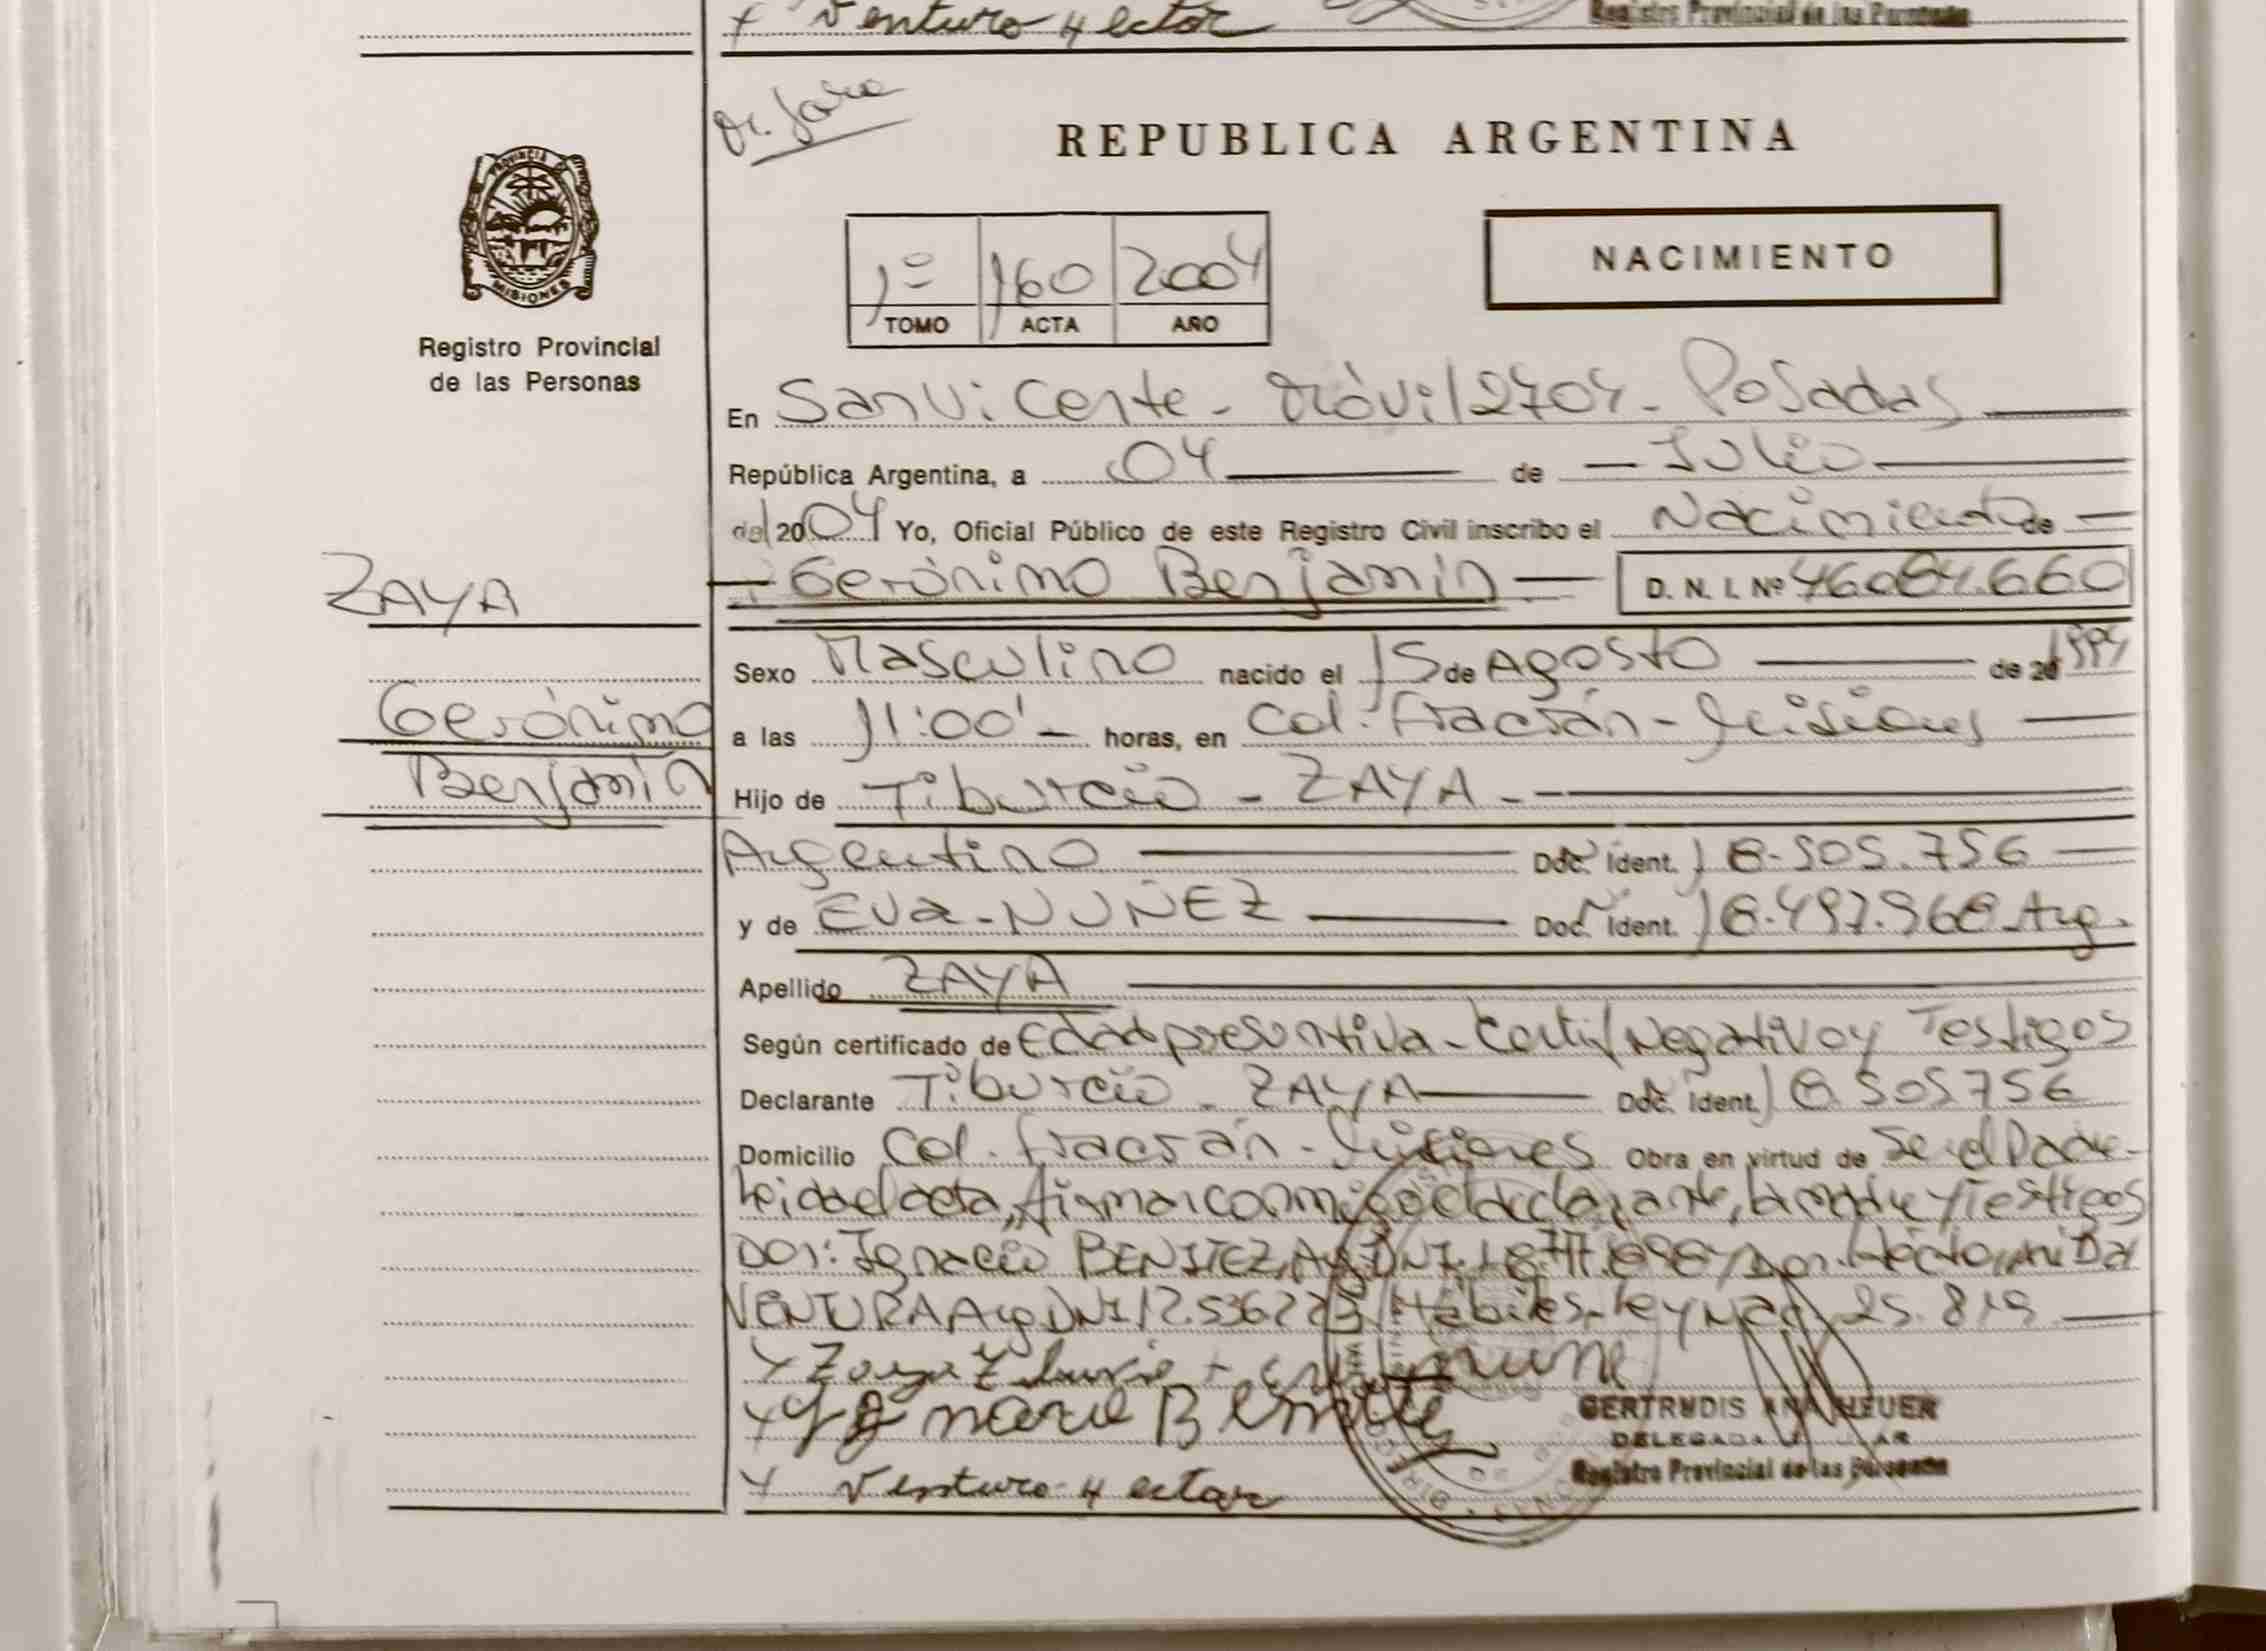 Ventura Hector
Registro Provincial de las Personas
REPUBLICA ARGENTINA
PROVINCIA DE
MISIONES
1º 160 2004
TOMO ACTA AÑO
NACIMIENTO
Registro Provincial
de las Personas
En San Vicente - Móvil 2704 - Posadas
República Argentina, a 04 de Julio
del 2004 Yo, Oficial Público de este Registro Civil inscribo el Nacimiento de
ZAYA
Gerónimo Benjamin D. N. I. Nº 46.084.660
Sexo Masculino nacido el 15 de Agosto de 20 1994
Gerónimo
Benjamin
a las 11:00 - horas, en Col. Fracrán - Misiones
Hijo de Tiburcio - ZAYA -
Argentino Doc. Ident. 18.505.756
y de Eva - NUÑEZ Doc. Ident. 18.497.968 Arg.
Apellido ZAYA
Según certificado de Edad presuntiva - Certif Negativo y Testigos
Declarante Tiburcio - ZAYA Doc. Ident. 18 505 756
Domicilio Col. Fracrán - Misiones Obra en virtud de Ser el Padre -
Leida el acta, firman conmigo el declarante, la madre y Testigos
Don: Ignacio BENITEZ, Arg. DNI. y Don. Hector
VENTURA Arg DNI 12.536223 Hábiles - Ley Nac. 25.819
x Zaya
x Benite
x Ventura Hector
GERTRUDIS ANA HEUER
DELEGADA
Registro Provincial de las Personas